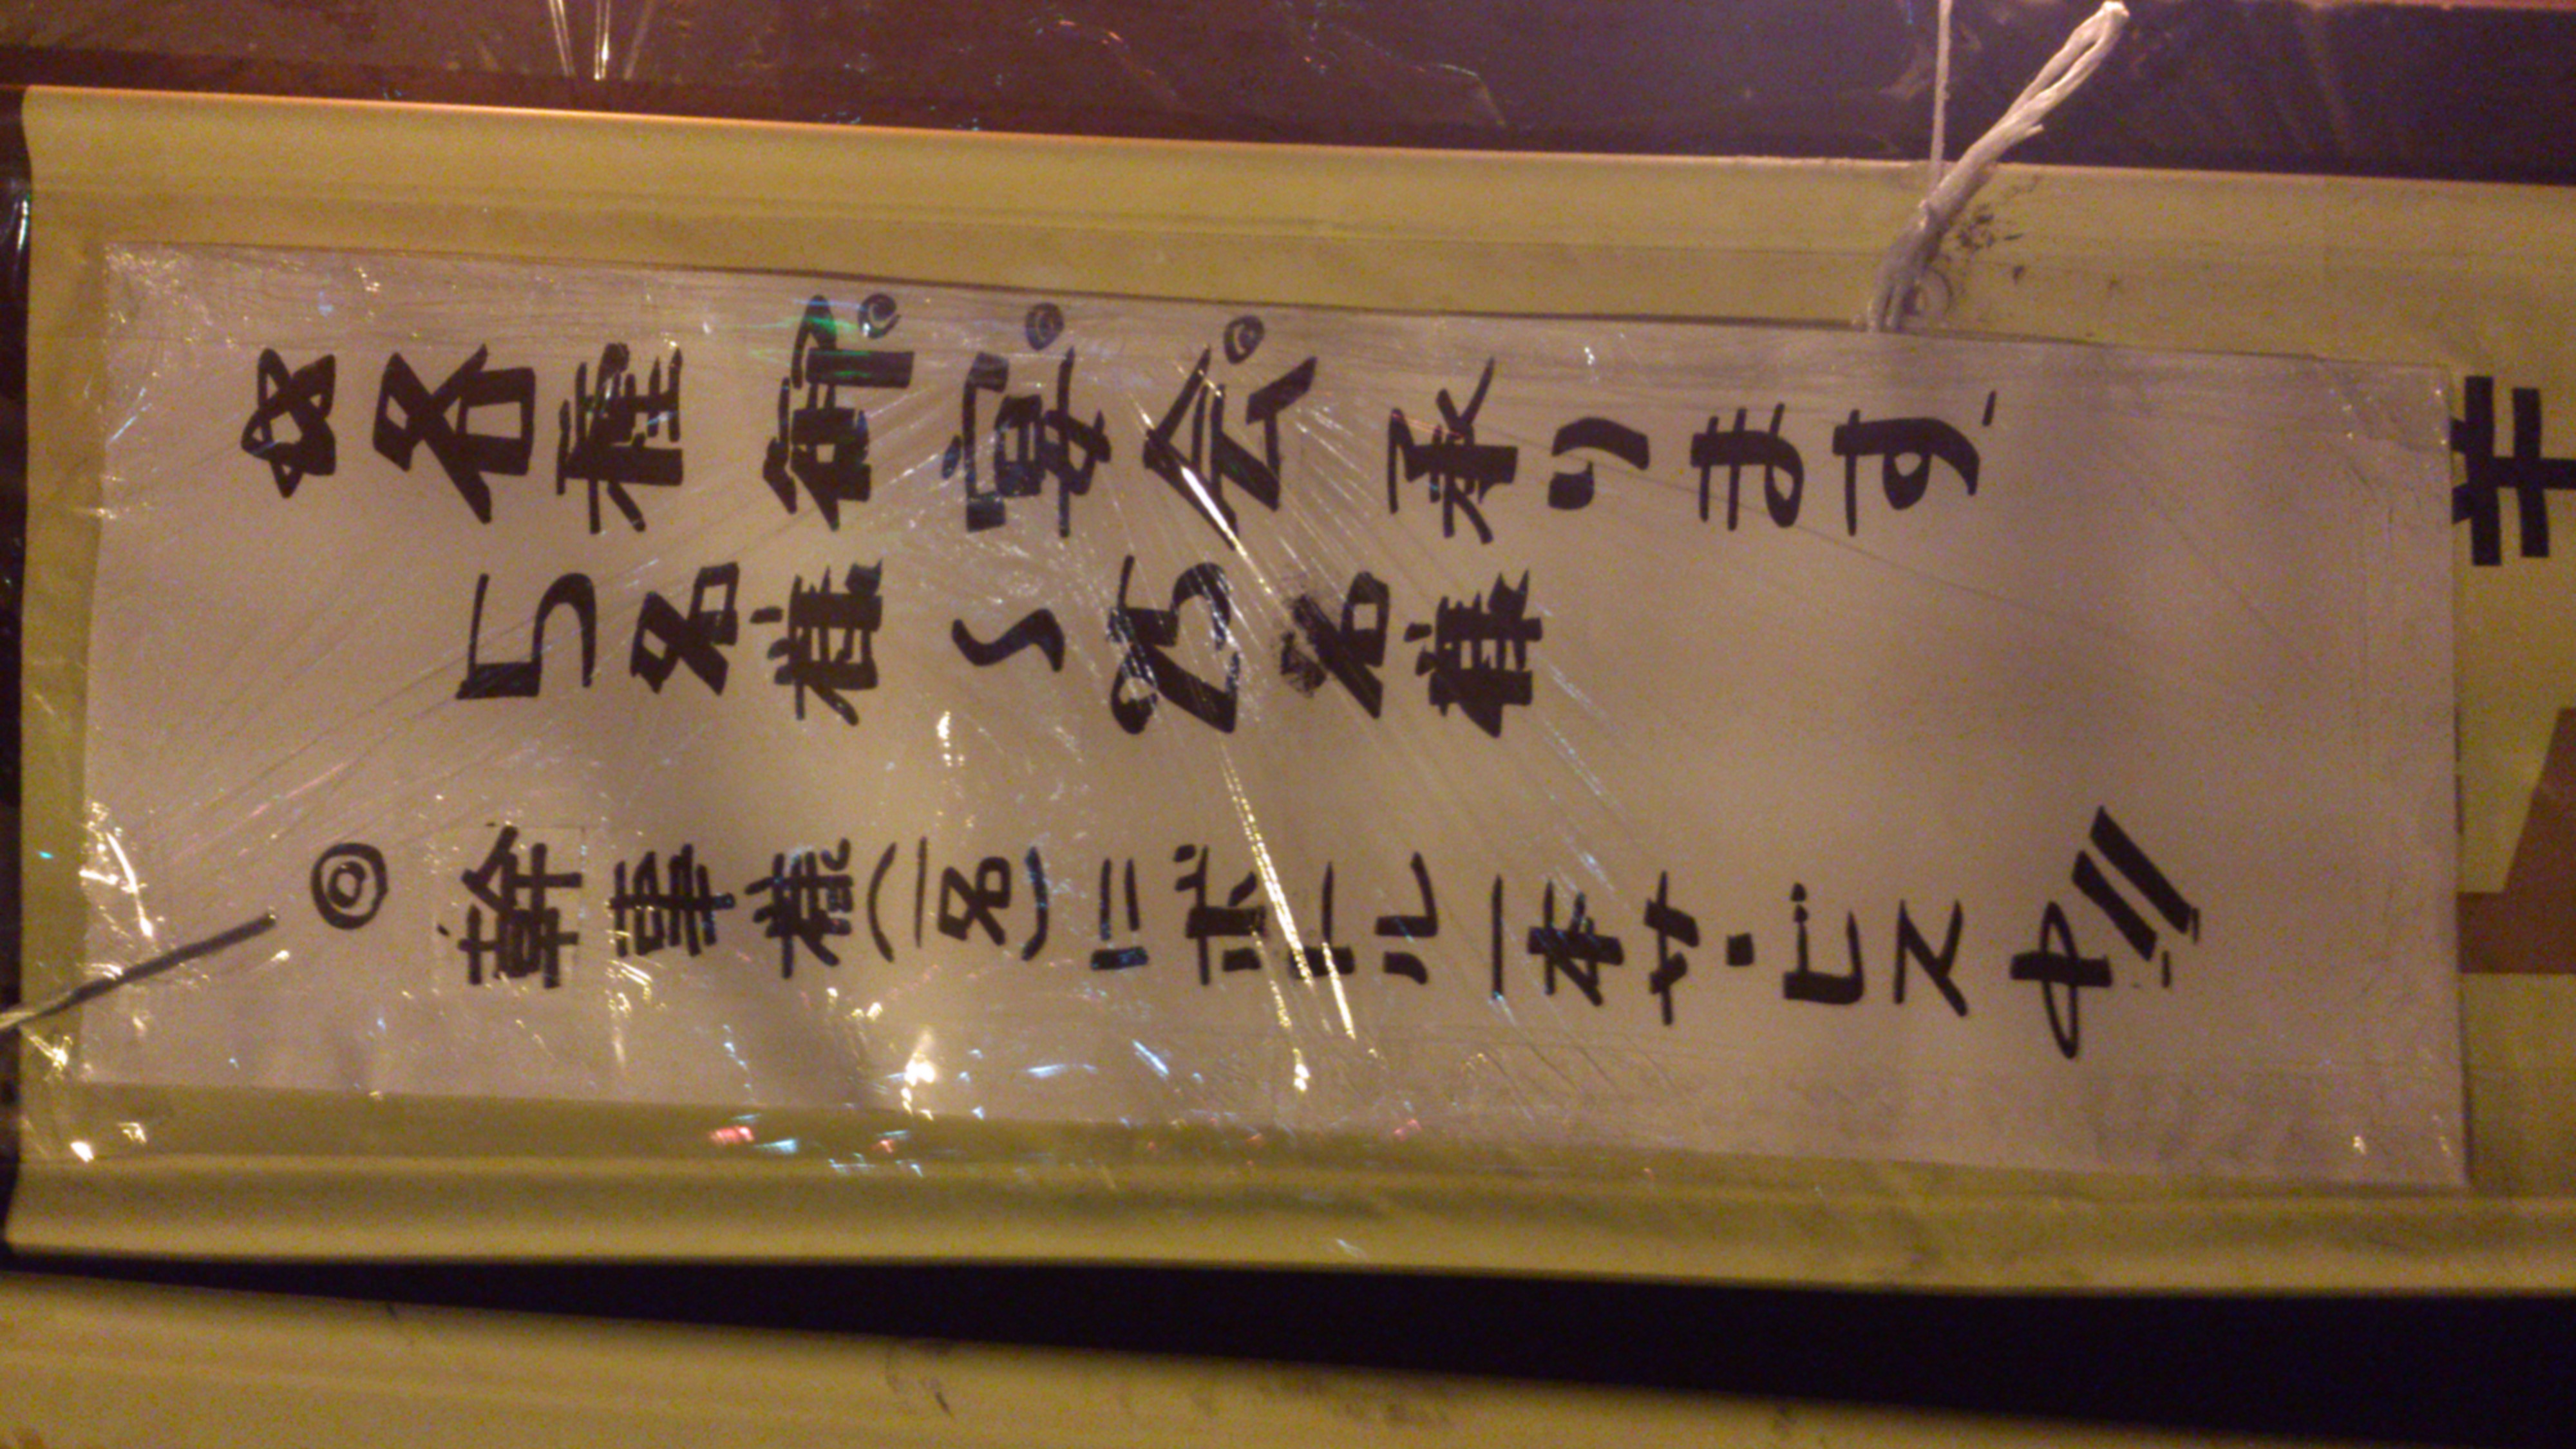 ☆各種御宴会承ります
5名様～25名様
◎幹事様(一名)にボトル一本サ・ビス中!!